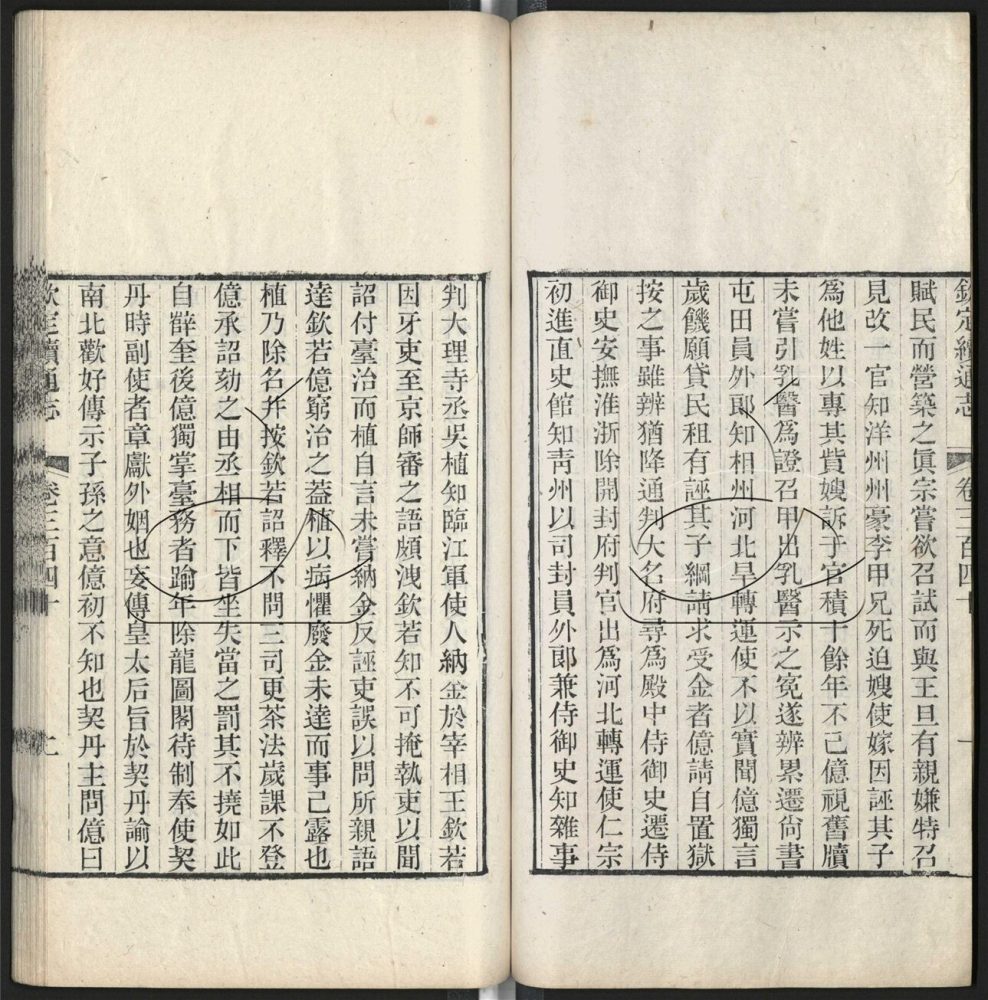 欽定續通志　卷三百四十　一
賦民而營築之眞宗嘗欲召試而與王旦有親嫌特召
見改一官知洋州州豪李甲兄死迫嫂使嫁因誣其子
為他姓以專其貲嫂訴于官積十餘年不已億視舊牘
未嘗引乳醫為證召甲出乳醫示之冤遂辨累遷尚書
屯田員外郎知相州河北旱轉運使不以實聞億獨言
歲饑願貸民租有誣其子綱請求受金者億請自置獄
按之事雖辨猶降通判大名府尋為殿中侍御史遷侍
御史安撫淮浙除開封府判官出為河北轉運使仁宗
初進直史館知靑州以司封員外郎兼侍御史知雜事
判大理寺丞吳植知臨江軍使人納金於宰相王欽若
因牙吏至京師審之語頗洩欽若知不可掩執吏以聞
詔付臺治而植自言未嘗納金反誣吏誤以問所親語
達欽若億窮治之蓋植以病懼廢金未達而事已露也
植乃除名幷按欽若詔釋不問三司更茶法歲課不登
億承詔劾之由丞相而下皆坐失當之罰其不撓如此
自薛奎後億獨掌臺務者踰年除龍圖閣待制奉使契
丹時副使者章獻外姻也妄傳皇太后旨於契丹諭以
南北歡好傳示子孫之意億初不知也契丹主問億曰
欽定續通志　卷三百四十